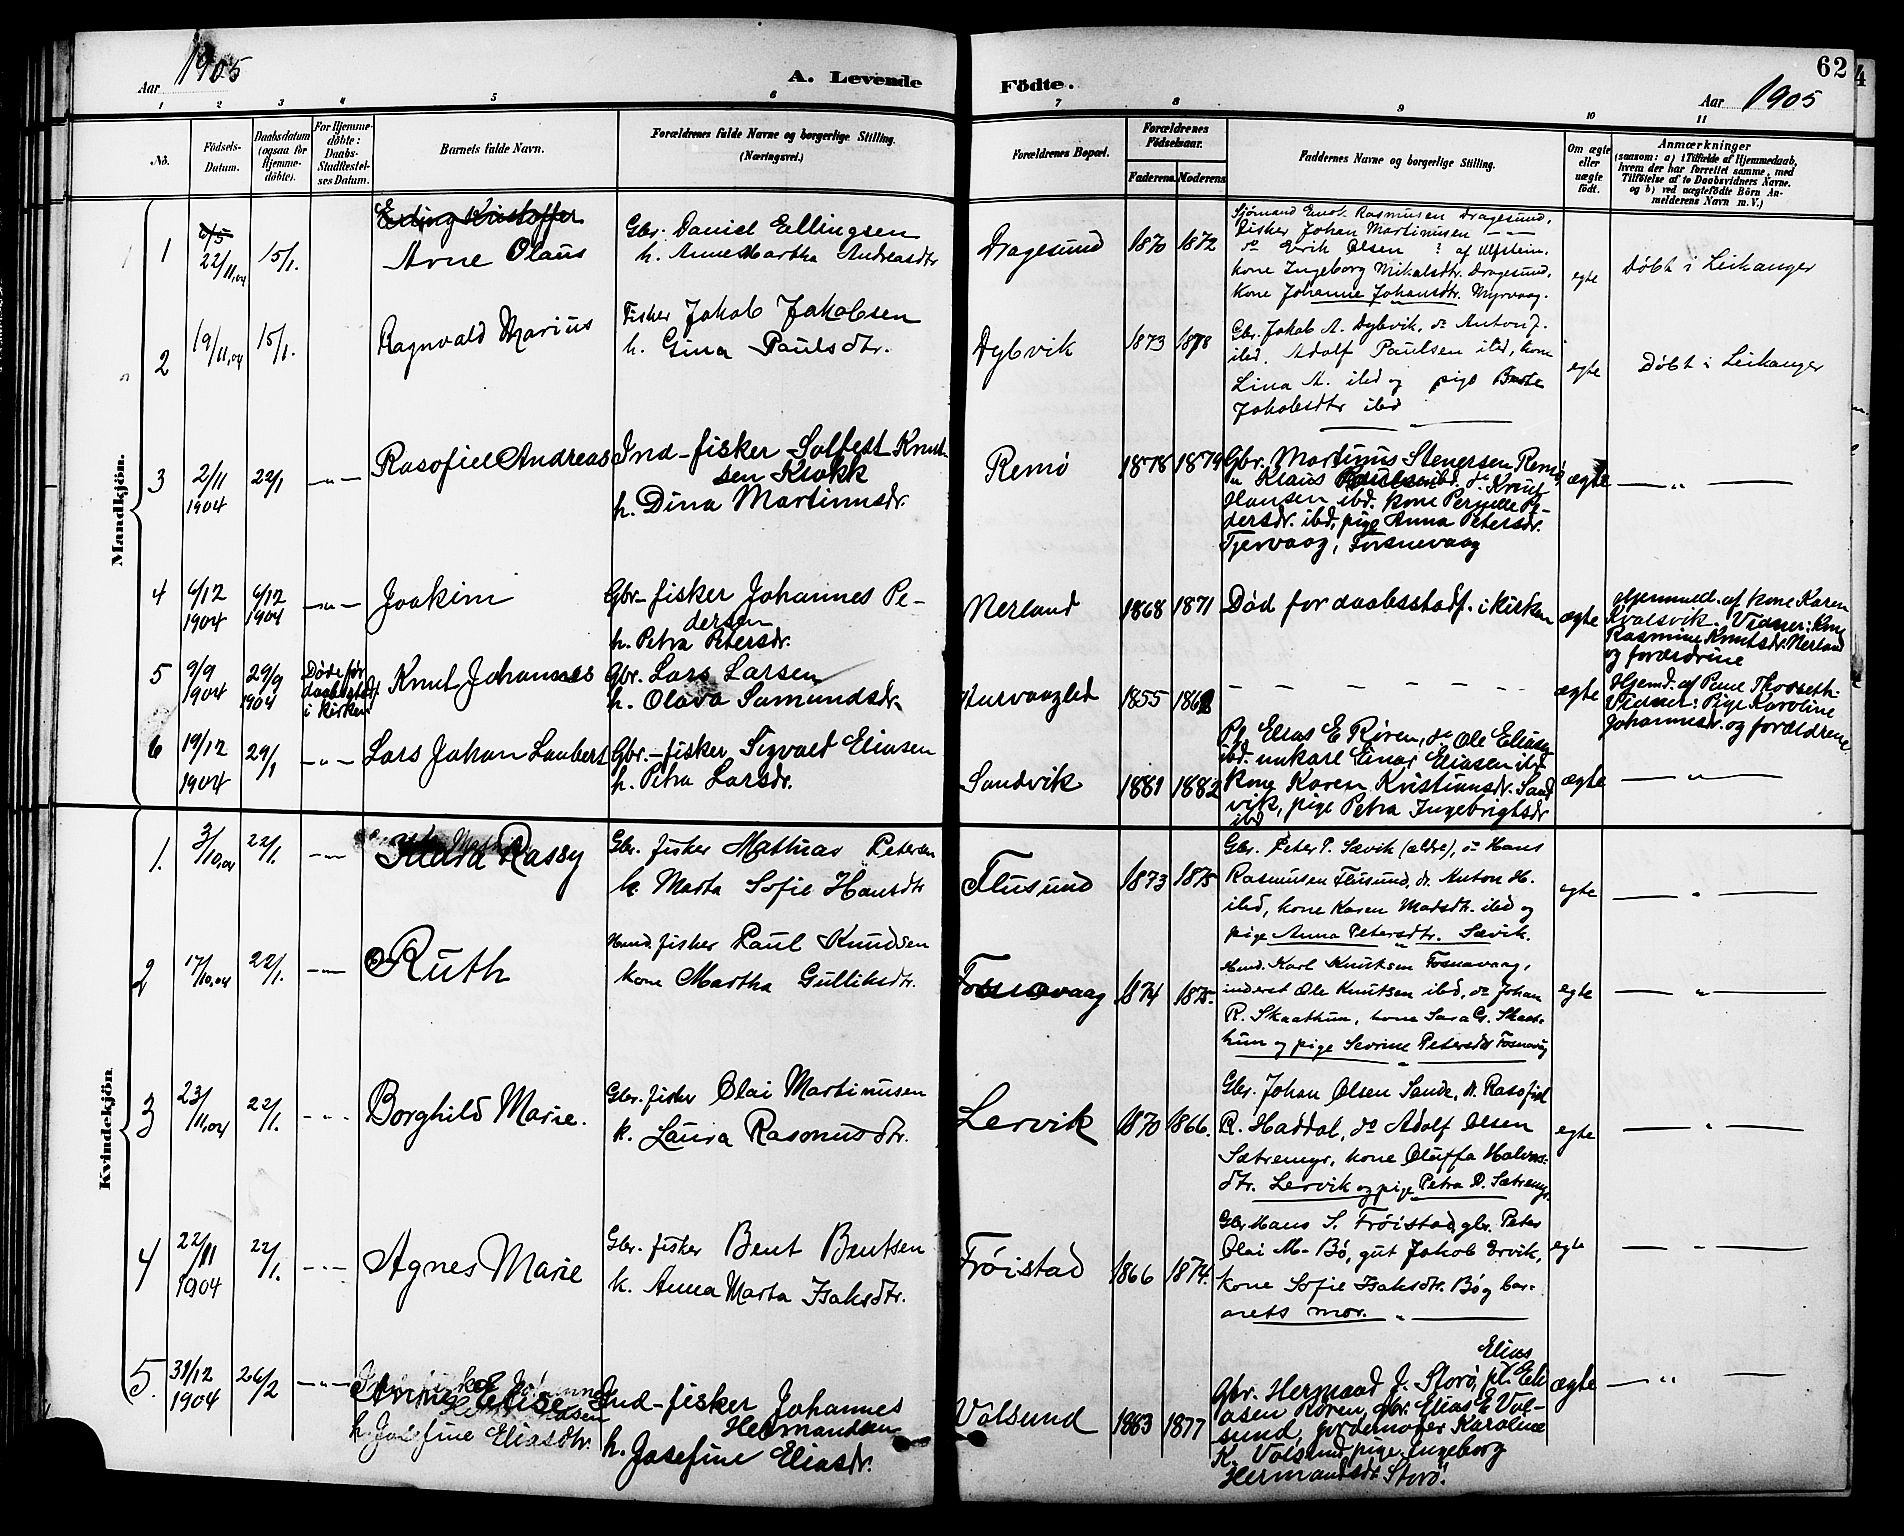 Aar 1905
A. Levende
Födte.
Aar 1905
62
1 2 3 4 5 6 7 8 9 10 11
No.
Födsels-
Datum.
Daabsdatum
(ogsaa for
Hjemme-
döbte).
For Hjemme-
döbte:
Daabs-
Stadfestel-
ses Datum.
Barnets fulde Navn.
Forældrenes fulde Navne og borgerlige Stilling.
(Næringsvei.)
Forældrenes Bopæl.
Forældrenes
Födselsaar.
Faderens. Moderens.
Faddernes Navne og borgerlige Stilling.
Om ægte
eller
uægte
födt.
Anmærkninger
(saasom: a) i Tilfælde af Hjemmedaab,
hvem der har forrettet samme, med
Tilföielse af to Daabsvidners Navne.
og b) ved uægtefödte Börn An-
melderens Navn m.V.)
Mandkjön.
1
6/5
22/11,04
15/1.
Erling Kristoffer
Arne Olaus
Gbr. Daniel Ellingsen
h. Anne Martha Andreasdtr
Dragesund
1870
1872
Sjömand Rasmusen Dragesund,
Fisker Johan Martinusen — —
do Eerik Olsen ? af Ulfstein.
kone Ingeborg Mikalsdtr. Dragesund,
kone Johanne Johansdtr. Myrvaag.
egte
Döbt i Leikanger
2
19/11,04
15/1.
Ragnvald Marius
Fisker Jakob Jakobsen
h. Gina Paulsdtr.
Dybvik
1873
1878
Gbr. Jakob A. Dybvik, do Anton J.
ibd. Adolf Paulsen ibd, kone
Lina A. ibd og pige
Jakobsdtr ibd
egte
Döbt i Leikanger
3
2/11
1904
22/1
— „ —
Rasofiel Andreas
Ind-fisker Solfest Knut-
sen Klokk
h. Dina Martinusdr.
Remö
1878
1879
Gbr. Martinus Stenersen Remö
" Klaus Paulsen ibd. do Knut
Hansen ibd. kone Pernille Pe-
dersdr. ibd, pige Anna Petersdr.
Tjervaag, Fosnevaag
ægte
— „ —
4
6/12
1904
6/12
1904
— „ —
Joakim
Gbr-fisker Johannes Pe-
dersen
h. Petra Petersdr.
Nerland
1868
1871
Död for daabsstadf. i kirken
ægte
Hjemmed. af kone Karen
Kvalsvik. Vidner: kone
Rasmine Knutsdr. Nerland
og forældrene
5
9/9
1904
29/9
1904
Döde för
daabstadf
i kirken
Knut Johannes
Gbr. Lars Larsen
h. Olava Samundsdr.
1855
1862
— — — — — —
ægte
Hjemd. af Paul Thorseth.
Vidner: Pige Karoline
Johannesdr. og forældrene
6
19/12
1904
29/1
— „ —
Lars Johan Laubert
Gbr.-fisker Sigvald Eliasen
h. Petra Larsdr.
Sandvik
1881
1882
Pl. Elias E Rören, do Ole Eliasen
ibd. unkarl Einar Eliasen ibd
kone Karen Kristiansdr. Sand
vik, pige Petra Ingebrigtsdr
ibd
ægte
— „ —
Kvindekjön
1.
3/10,04
22/1.
— „ —
Klara Rassy
Gbr. fisker Mathias Petersen
k. Marta Sofie Hansdtr
Flusund
1873
1875
Gbr. Peter P. Sævik (ældre), do Hans
Rasmusen Flusund, do Anton H.
ibd, kone Karen Madsdtr. ibd og
pige Anna Petersdtr. Sævik.
egte
— „ —
2
17/10,04
22/1.
— „ —
Ruth
Hmd. fisker Paul Knudsen
kone Martha Gulliksdtr.
Fosnavaag
1874
1875.
Hmd. Karl Knutsen Fosnavaag,
inderst Ole Knutsen ibd, do Johan
R. Skaathun, kone Sara G. Skaat-
hun og pige Sevrine Petersdtr Fosnavåg
egte
— „ —
3
23/11,04
22/1.
— „ —
Borghild Marie.
Gbr. fisker Olai Martinusen
k. Laura Rasmusdtr.
Lervik
1870
1866.
Gbr. Johan Olsen Sande, do Rasofiel
R. Haddal, do Adolf Olsen
Sætremyr, kone Oluffa Halvars-
dtr. Lervik og pige Petra D. Sætremyr.
egte
— „ —
4
22/11
1904
22/1.
— „ —
Agnes Marie
Gbr. fisker Bent Bentsen
k. Anna Marta Isaksdtr.
Fröistad
1866
1874.
Gbr Hans S. Fröistad, gbr. Peter
Olai M- Bö, gut Jakob Ervik,
kone Sofie Isaksdtr. Bö og bar-
nets mor.
egte
— „ —
5.
31/12
1904
26/2
— „ —
Anne Elise
h. Josefine Eliasdtr.
Ind-fisker Johannes
Hermandsen
h. Josefine Eliasdr.
Volsund
1883
1877
Elias
Gbr. Hermand J. Storö, pl. Eli
asen Rören, gbr. Elias E Vol-
sund, jordemoder Karoline
K. Volsund, pige Ingeborg
Hermandsdr Storö.
ægte
— „ —